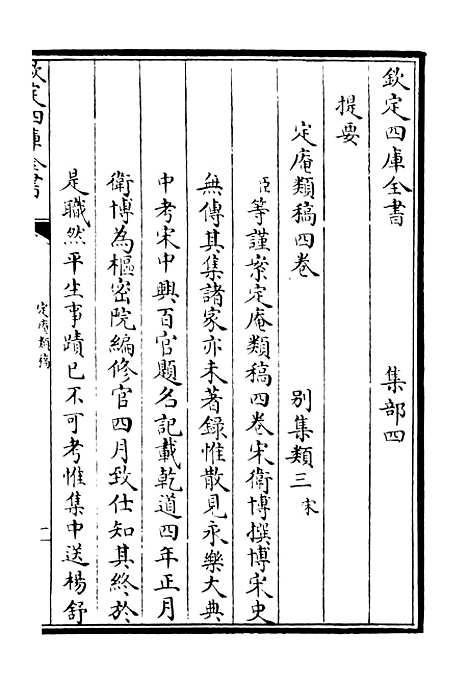 欽定四庫全書　集部四
提要
定庵類稿四卷　別集類三宋
臣等謹案定庵類稿四卷宋衛博撰博宋史
無傳其集諸家亦未著録惟散見永樂大典
中考宋中興百官題名記載乾道四年正月
衛博為樞密院編修官四月致仕知其終於
是職然平生事蹟已不可考惟集中送楊舒
欽定四庫全書
定庵類稿